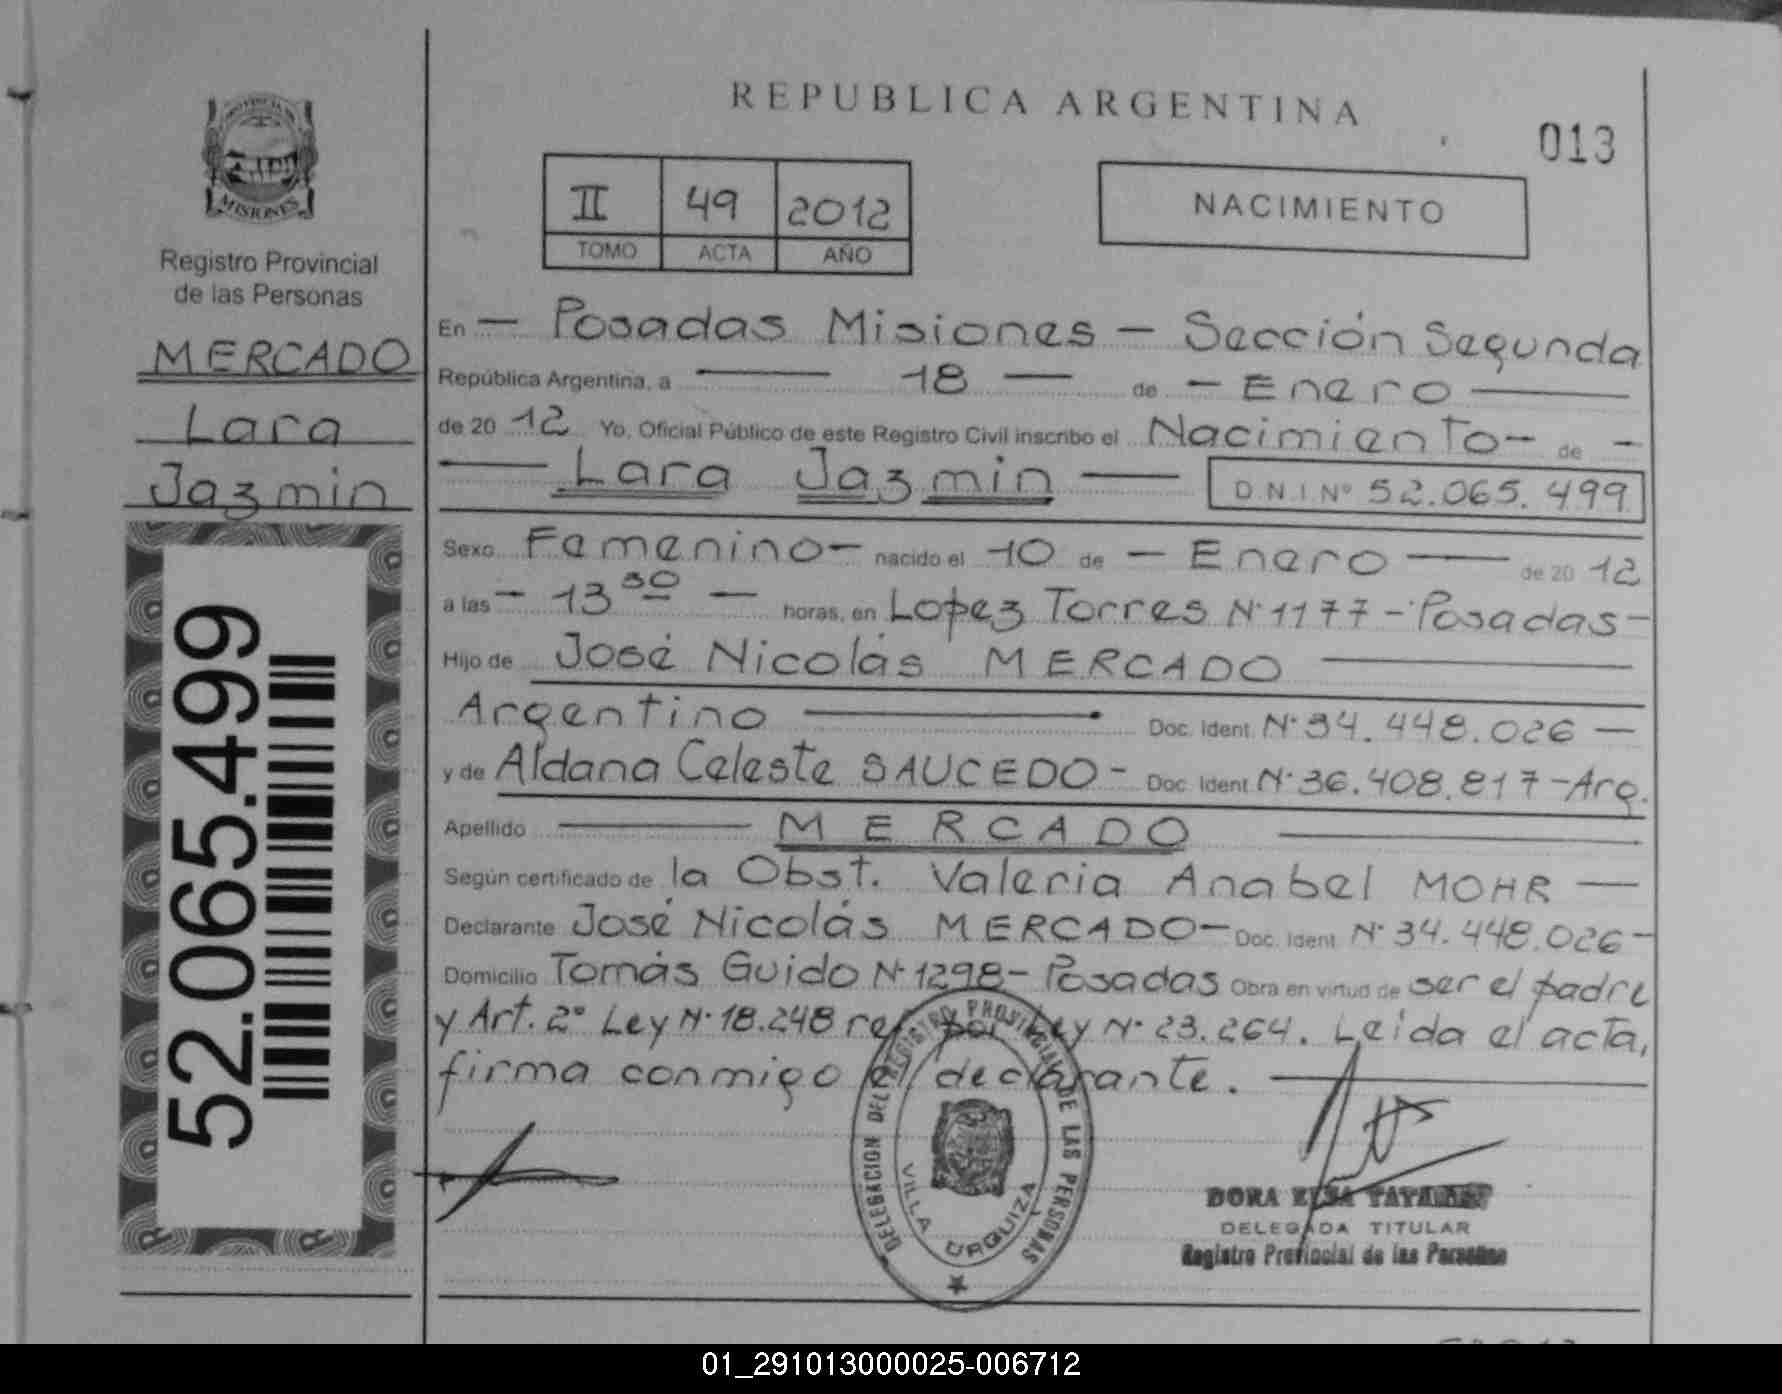 REPUBLICA ARGENTINA
013
II 49 2012
TOMO ACTA AÑO
NACIMIENTO
PROVINCIA DE
MISIONES
Registro Provincial
de las Personas
MERCADO
Lara
Jazmin
52.065.499
En — Posadas Misiones — Sección Segunda
República Argentina, a — 18 — de — Enero —
de 20 12 Yo, Oficial Público de este Registro Civil inscribo el Nacimiento — de —
— Lara Jazmin — D.N.I.Nº 52.065.499
Sexo Femenino — nacido el 10 de — Enero — de 20 12
a las — 13 30 — horas, en Lopez Torres Nº 1177 — Posadas —
Hijo de José Nicolás MERCADO —
Argentino — Doc. Ident. Nº 34.448.026 —
y de Aldana Celeste SAUCEDO — Doc. Ident. Nº 36.408.817 — Arg.
Apellido — MERCADO —
Según certificado de la Obst. Valeria Anabel MOHR —
Declarante José Nicolás MERCADO — Doc. Ident. Nº 34.448.026 —
Domicilio Tomás Guido Nº 1298 — Posadas Obra en virtud de ser el padre
y Art. 2º Ley Nº 18.248 ref. por Ley Nº 23.264. Leida el acta,
firma conmigo el declarante. —
DELEGACION DEL REGISTRO PROVINCIAL DE LAS PERSONAS
VILLA URQUIZA
DORA ELSA
DELEGADA TITULAR
Registro Provincial de las Personas
01_291013000025-006712